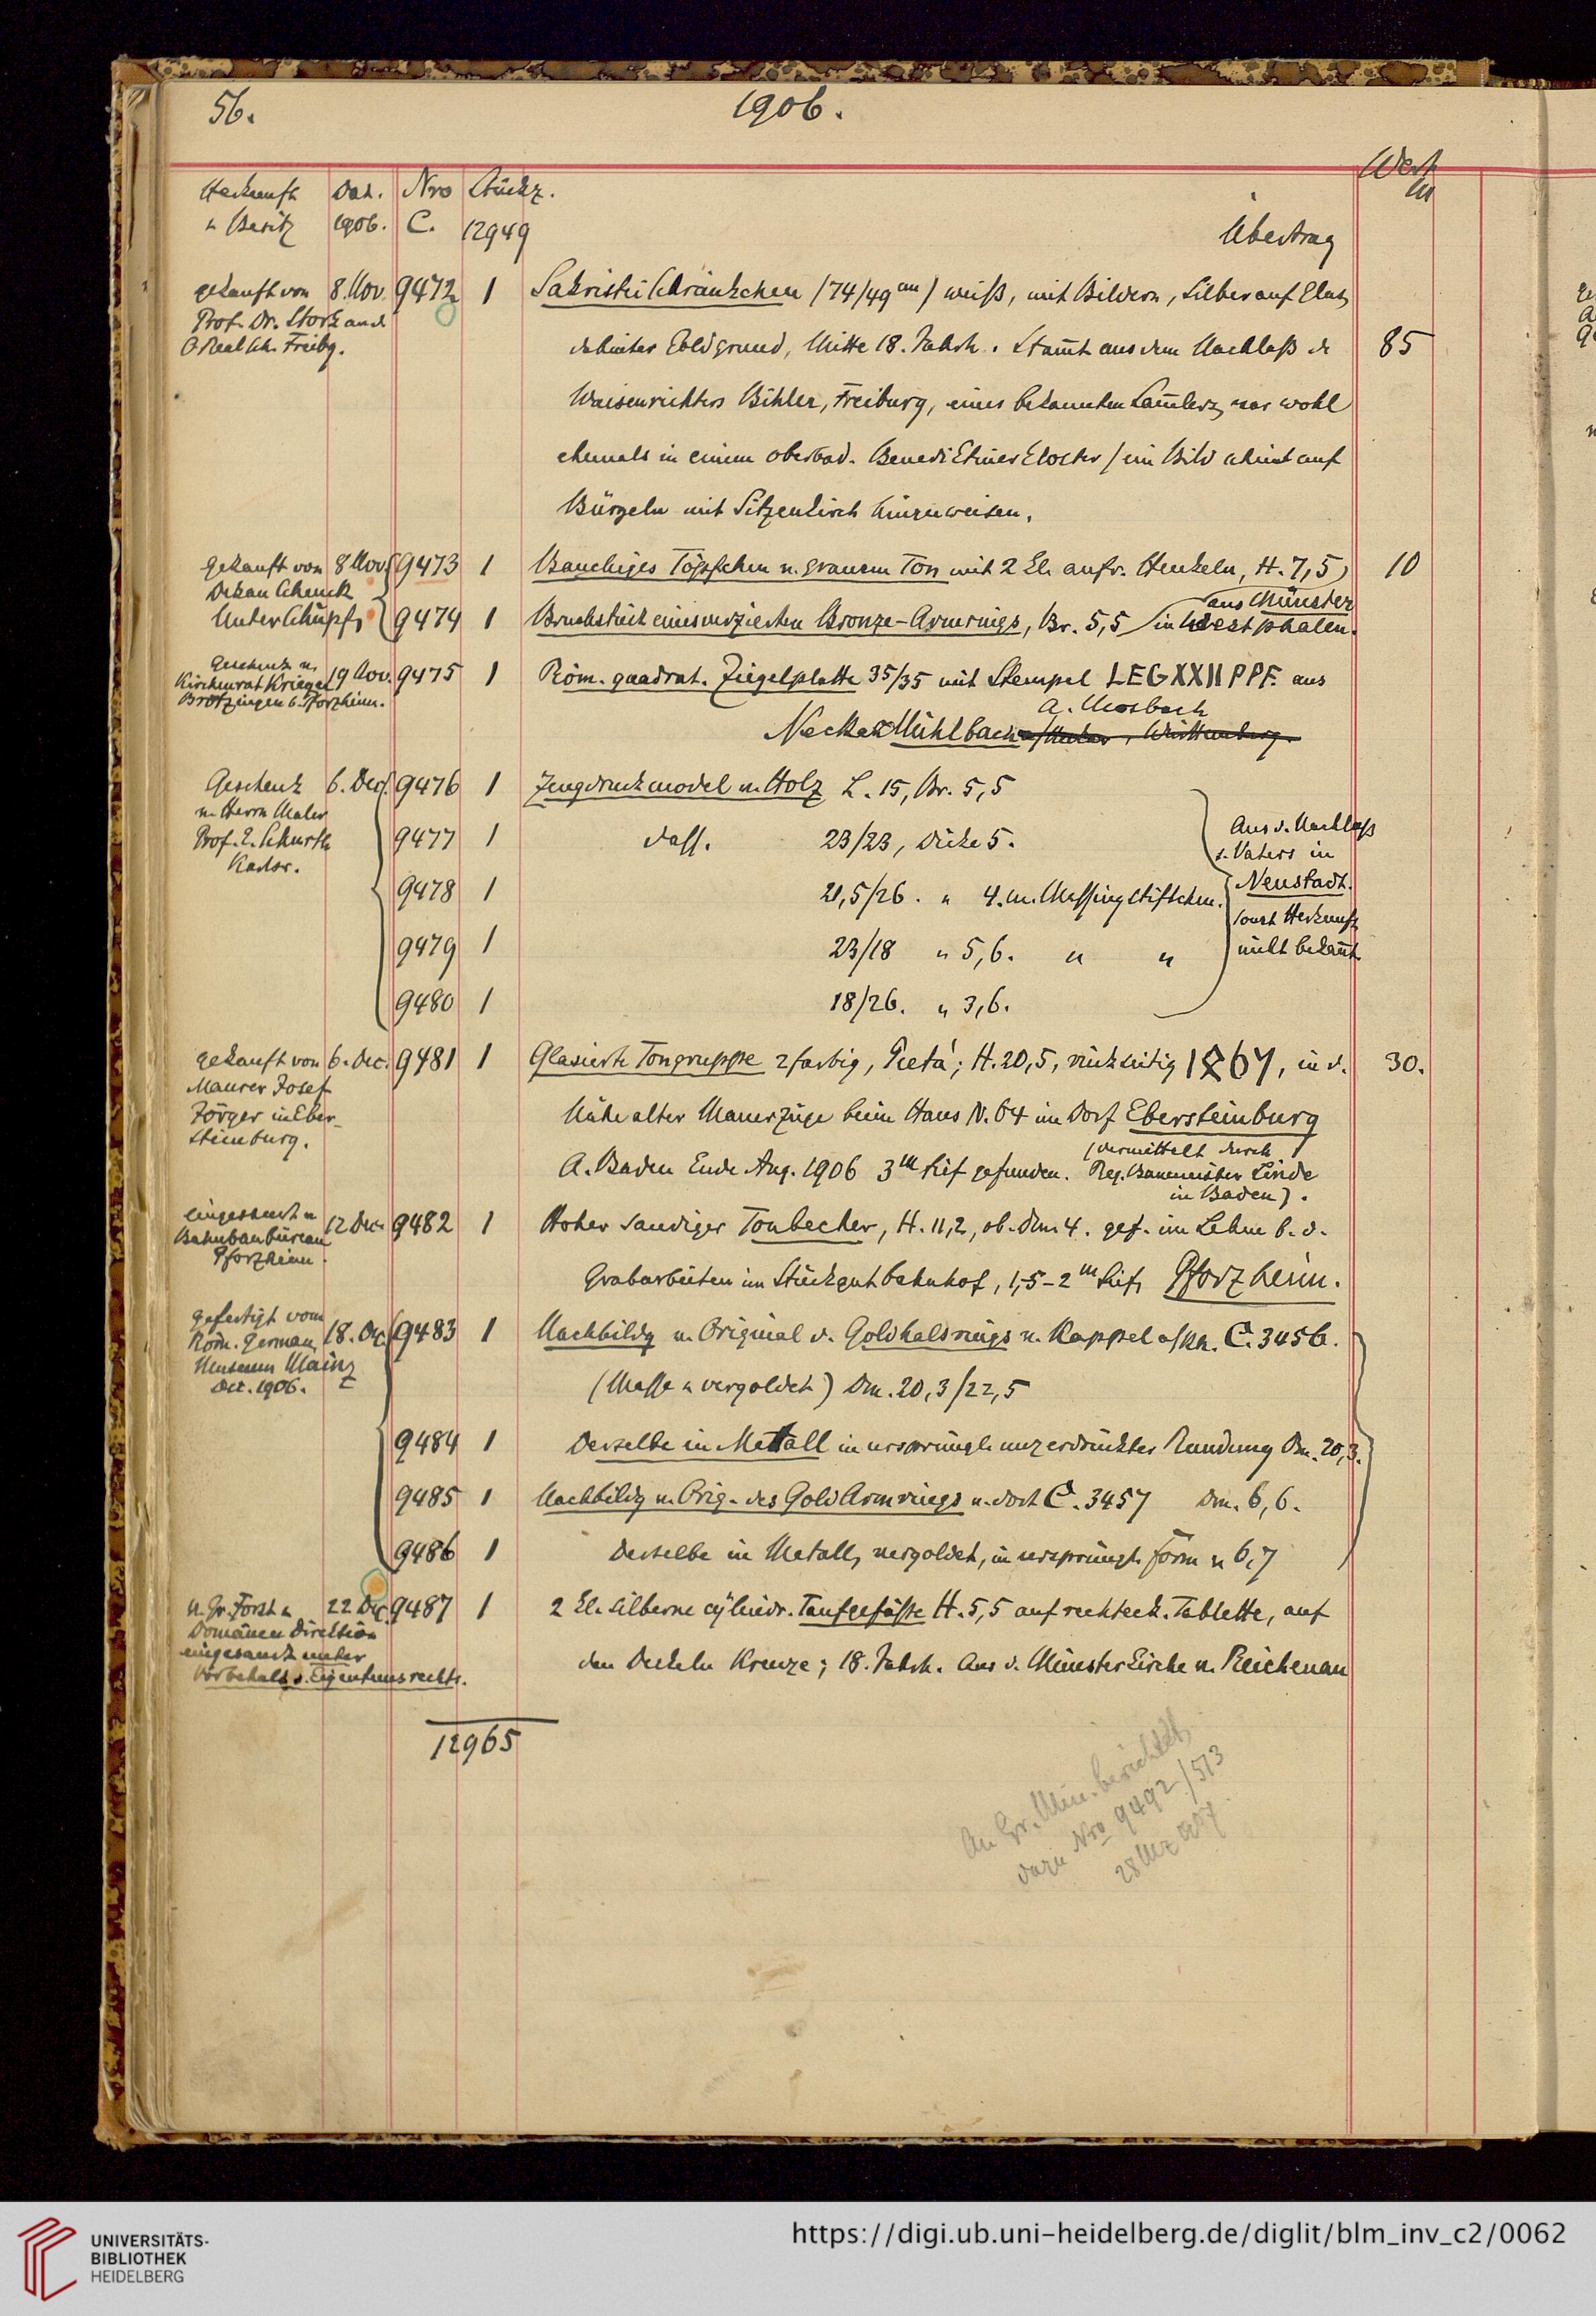 56.
1906.
Wert
M
Herkunft Dat. Nro Stückz.
u Besitz 1906. C. 12949 Übertrag
gekauft von 8. Nov. 9472 1 Sakristei Schränkchen (74/49 cm) weiß, mit Bildern, Silber auf Glas,
Prof. Dr. Stork an d.
O Real Sch. Freibg. dahinter Goldgrund, Mitte 18. Jahrh. Stam̄t aus dem Nachlaß d. 85
Waisenrichters Bihler, Freiburg, eines bekannten Sam̄lers, war wohl
ehemals in einem oberbad. Benediktinerkloster / ein Bild scheint auf
Bürgeln mit Sitzenkirch hinzuweisen.
gekauft von 8 Nov. 9473 1 Bauchiges Töpfchen v. grauem Ton mit 2 kl. aufr. Henkeln, H. 7,5 10
Dekan Schenck
Unter Schüpf, 9474 1 Bruchstück eines verzierten Bronze-Armrings, Br. 5,5 in Westphalen.
aus Münster
Geschenk v.
Kirchenrat Krieger 19 Nov. 9475 1 Röm. quadrat. Ziegelplatte 35/35 mit Stempel LEGXXII PPF. aus
Brötzingen b. Pforzheim.
A. Mosbach
Neckar Mühlbach a/Neckar, Württemberg.
Geschenk 6. Dec. 9476 1 Zeugdruckmodel v. Holz L. 15, Br. 5,5
v. Herrn Maler
Prof. E. Schurth 9477 1 dass. 23/23, Dicke 5.
Karlsr.
Aus d. Nachlaß
s. Vaters in
Neustadt.
sonst Herkunft
nicht bekan̄t
9478 1 21,5/26. " 4. m. Messingstiftchen.
9479 1 23/18 " 5,6. " "
9480 1 18/26. " 3,6.
gekauft von 6. Dec. 9481 1 Glasierte Tongruppe 2farbig, Pietá; H. 20,5, rückseitig 1767, in d. 30.
Maurer Josef
Jörger in Eber- Nähe alter Mauerzüge beim Haus N. 64 im Dorf Ebersteinburg
steinburg.
A. Baden Ende Aug. 1906 3 m tief gefunden. (vermittelt durch
Reg. Baumeister Linde
in Baden).
eingesandt v
Bahnbaubüreau 12 Dec. 9482 1 Hoher sandiger Tonbecher, H. 11,2, ob. Dm. 4. gef. im Lehm b. d.
Pforzheim.
Grabarbeiten im Stückgutbahnhof, 1,5-2 m tief, Pforzheim.
gefertigt vom
Röm. german. 18. Dec. 9483 1 Nachbildg v. Original d. Goldhalsrings v. Kappel a/Rh. C. 3456.
Museum Mainz
Dec. 1906. (Masse u vergoldet) Dm. 20,3/22,5
9484 1 Derselbe in Metall in ursprüngl. unzerdrückter Rundung Dm. 20,3.
9485 1 Nachbildg v. Orig. des Gold Armrings v. dort C. 3457 Dm. 6,6.
9486 1 Derselbe in Metall, vergoldet, in ursprüngl. Form " 6,7
v. Gr. Forst u 22 Dec. 9487 1 2 kl. silberne cylindr. Taufgefäße H. 5,5 auf rechteck. Tablette, auf
Domänen Direktion
eingesandt unter den Deckeln Kreuze; 18. Jahrh. Aus d. Münsterkirche v. Reichenau
Vorbehalt d. Eigentumsrechts.
12965
An Gr. Min. berichtet,
dazu Nro 9492/513
28 Mz 1907.
UNIVERSITÄTS-
BIBLIOTHEK
HEIDELBERG
https://digi.ub.uni-heidelberg.de/diglit/blm_inv_c2/0062